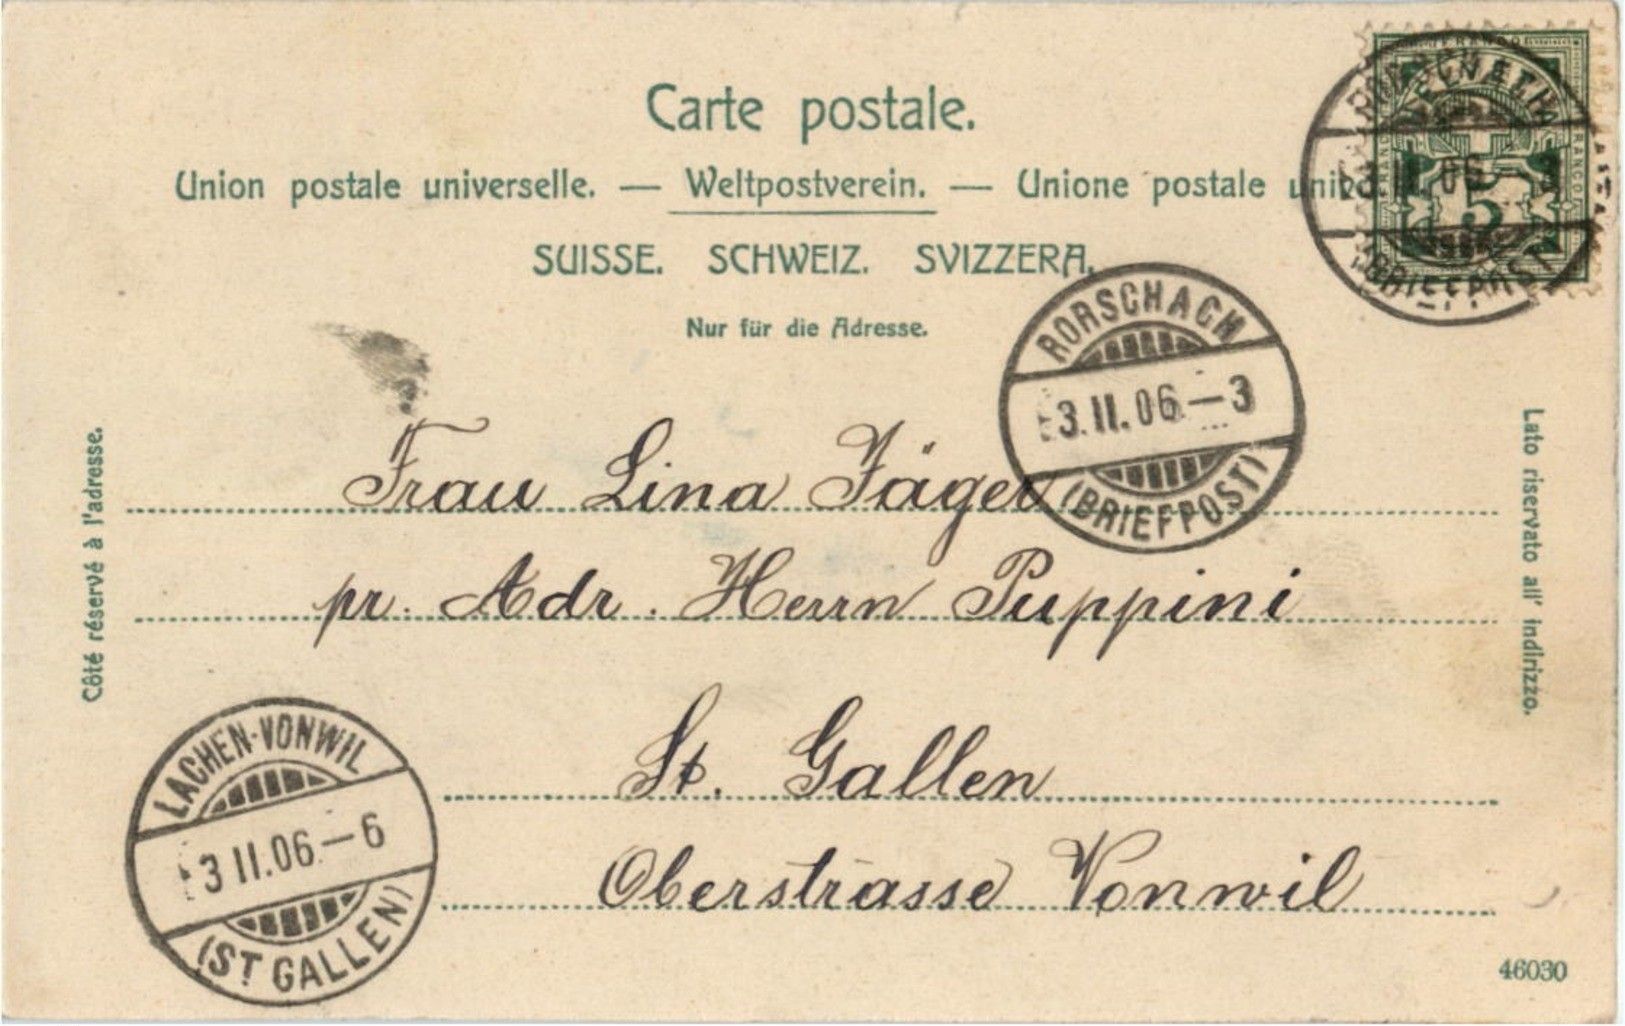 Carte postale.
Union postale universelle. — Weltpostverein. — Unione postale
SUISSE. SCHWEIZ. SVIZZERA.
Nur für die Adresse.
FRANCO
5
(BRIEFPOST)
RORSCHACH
3.II.06.—3
(BRIEFPOST)
Côté réservé à l'adresse.
Lato riservato all' indirizzo.
Frau Lina Jäger
pr. Adr. Herrn Puppini
St. Gallen
Oberstrasse Vonwil
LACHEN-VONWIL
3 II.06.—6
(ST GALLEN)
46030